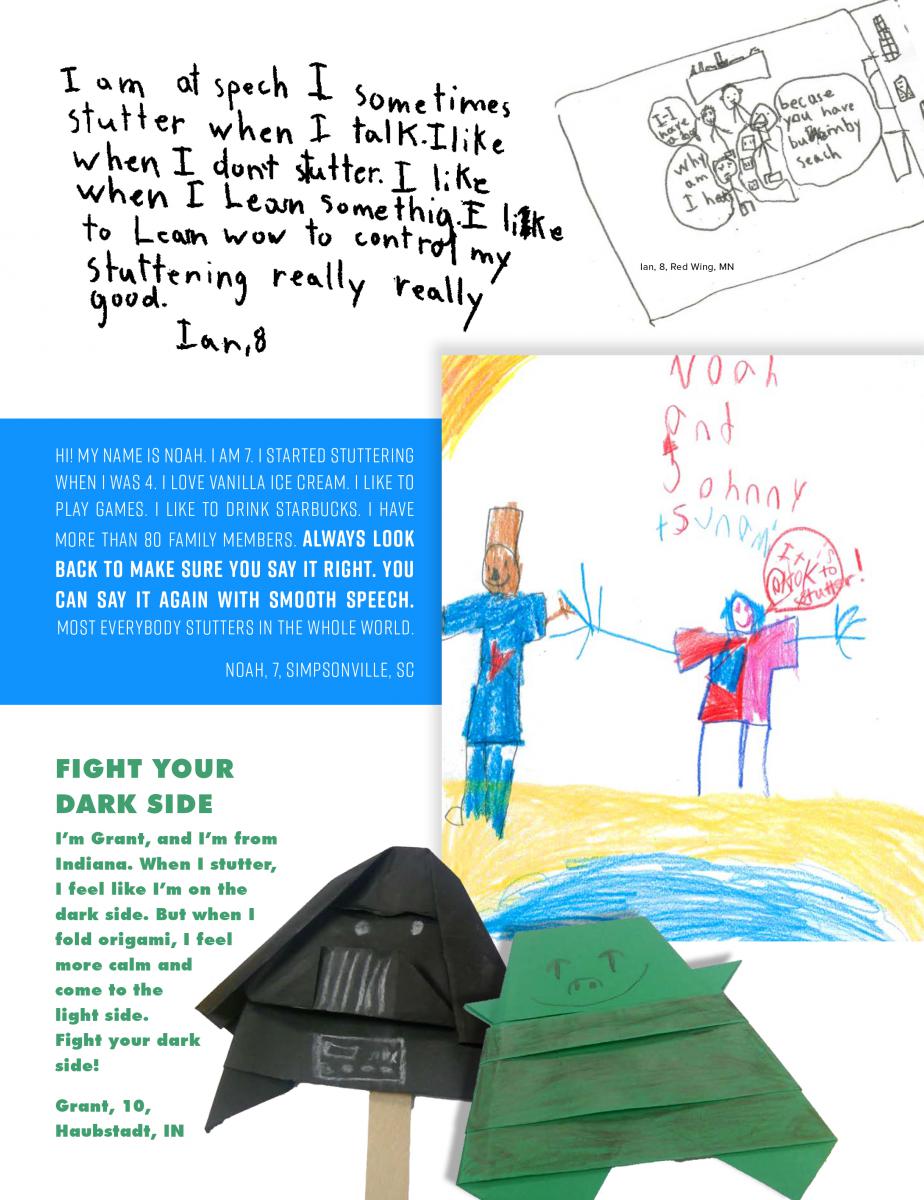 I am at spech I sometimes
stutter when I talk. I like
when I dont stutter. I like
when I Learn somethig. I like
to Learn wow to control my
stuttening really really
good.
Ian, 8
I-I
have
a
becase
you have
but
seach
why
am
I
Ian, 8, Red Wing, MN
Noah
and
Johnny
tsunami
It is
OK to
stutter!
HI! MY NAME IS NOAH. I AM 7. I STARTED STUTTERING
WHEN I WAS 4. I LOVE VANILLA ICE CREAM. I LIKE TO
PLAY GAMES. I LIKE TO DRINK STARBUCKS. I HAVE
MORE THAN 80 FAMILY MEMBERS. ALWAYS LOOK
BACK TO MAKE SURE YOU SAY IT RIGHT. YOU
CAN SAY IT AGAIN WITH SMOOTH SPEECH.
MOST EVERYBODY STUTTERS IN THE WHOLE WORLD.
NOAH, 7, SIMPSONVILLE, SC
FIGHT YOUR
DARK SIDE
I'm Grant, and I'm from
Indiana. When I stutter,
I feel like I'm on the
dark side. But when I
fold origami, I feel
more calm and
come to the
light side.
Fight your dark
side!
Grant, 10,
Haubstadt, IN